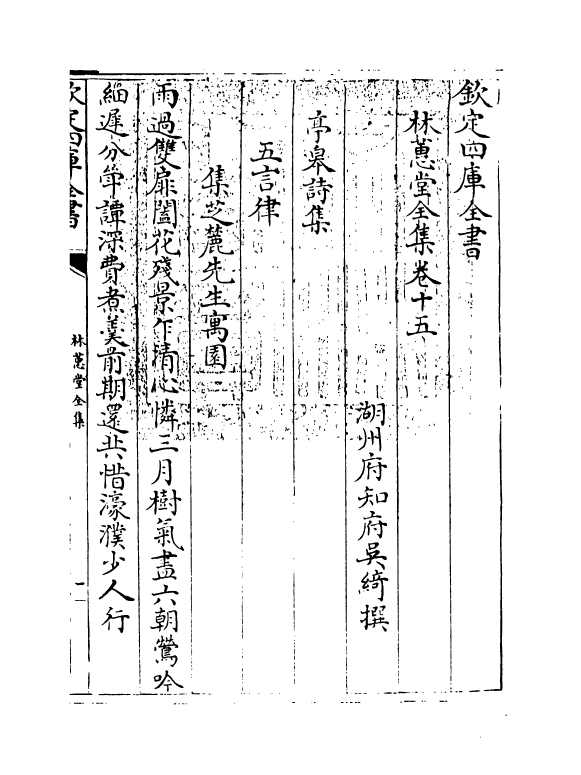 欽定四庫全書
林蕙堂全集卷十五
湖州府知府吳綺撰
亭臯詩集
五言律
集芝麓先生寓園
雨過雙扉闔花殘景乍清心憐三月樹氣盡六朝鶯吟
細遲分筆譚深費煮羹前期還共惜濠濮少人行
欽定四庫全書
林蕙堂全集
一